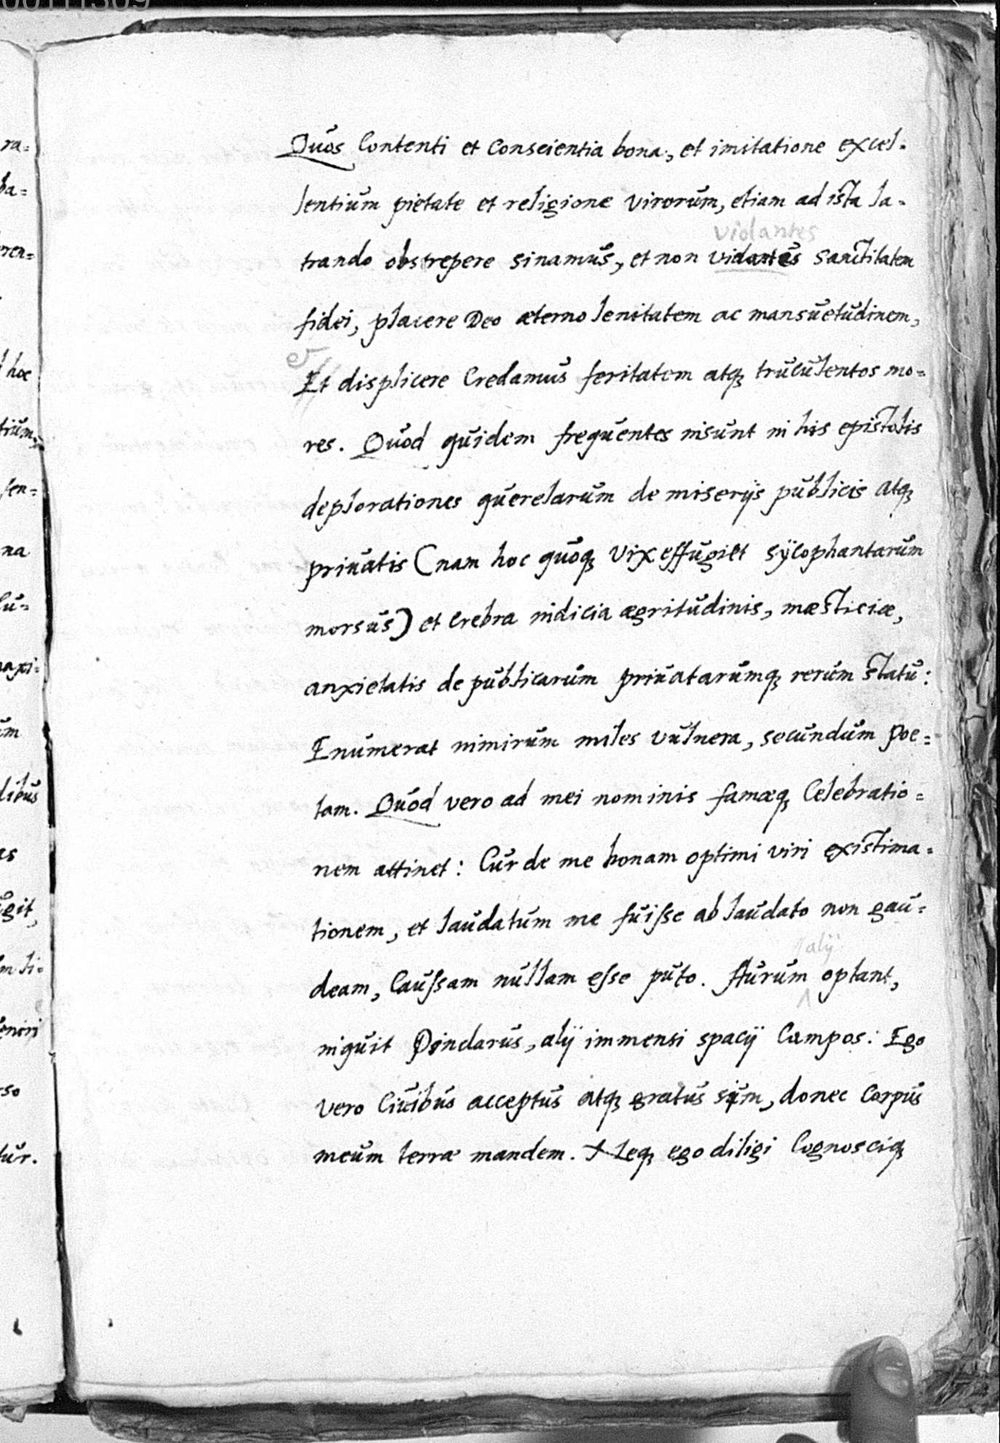 00111309
ra-
ba-
eren-
hoc
trium,
sen-
na
lu-
maxi-
um
dibus
es
git,
m li-
so
tur.
Quos contenti et conscientia bona, et imitatione excel-
lentium pietate et religione virorum, etiam ad ista la-
violantes
trando obstrepere sinamus, et non vidantes sanctitatem
fidei, placere Deo æterno lenitatem ac mansuetudinem,
et
Et displicere credamus feritatem atq; truculentos mo-
res. Quod quidem frequentes insunt in his epistolis
deplorationes querelarum de miserijs publicis atq;
priuatis (nam hoc quoq; vix effugiet sycophantarum
morsus) et crebra indicia ægritudinis, mæsticiæ,
anxietatis de publicarum priuatarumq; rerum statu:
Enumerat nimirum miles vulnera, secundum Poe-
tam. Quod vero ad mei nominis famæq; celebratio-
nem attinet: Cur de me bonam optimi viri existima-
tionem, et laudatum me fuisse ab laudato non gau-
alij
deam, caussam nullam esse puto. Aurum optant,
inquit Pindarus, alij immensi spacij campos: Ego
vero ciuibus acceptus atq; gratus sim, donec corpus
meum terræ mandem. Neq; ego diligi cognosciq;